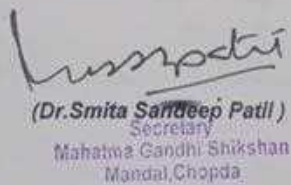 (Dr.Smita Sandeep Patil )
Secretary
Mahatma Gandhi Shikshan
Mandal,Chopda